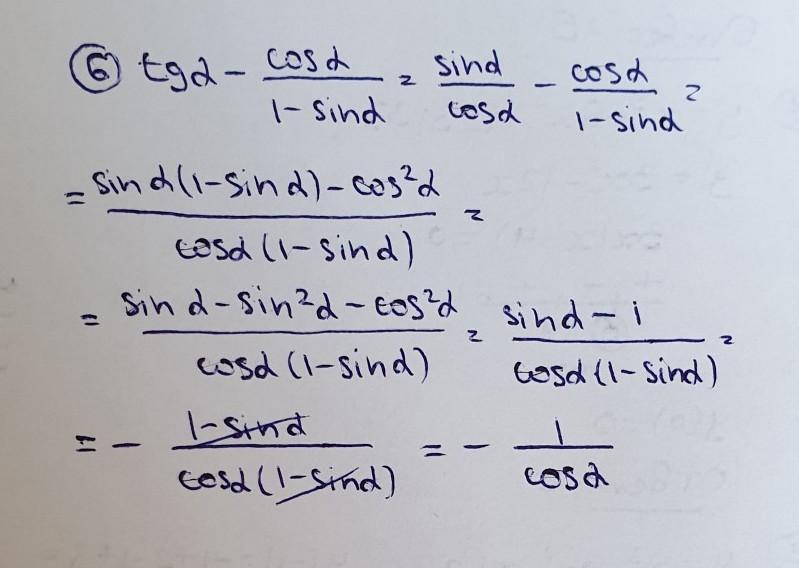 ⑥ tgα - cosα/(1 - sinα) = sinα/cosα - cosα/(1 - sinα) =
= (sin α(1 - sin α) - cos²α)/(cosα(1 - sin α)) =
= (sin α - sin²α - cos²α)/(cosα(1 - sinα)) = (sinα - 1)/(cosα(1 - sinα)) =
= - (1 - sinα)/(cosα(1 - sinα)) = - 1/cosα